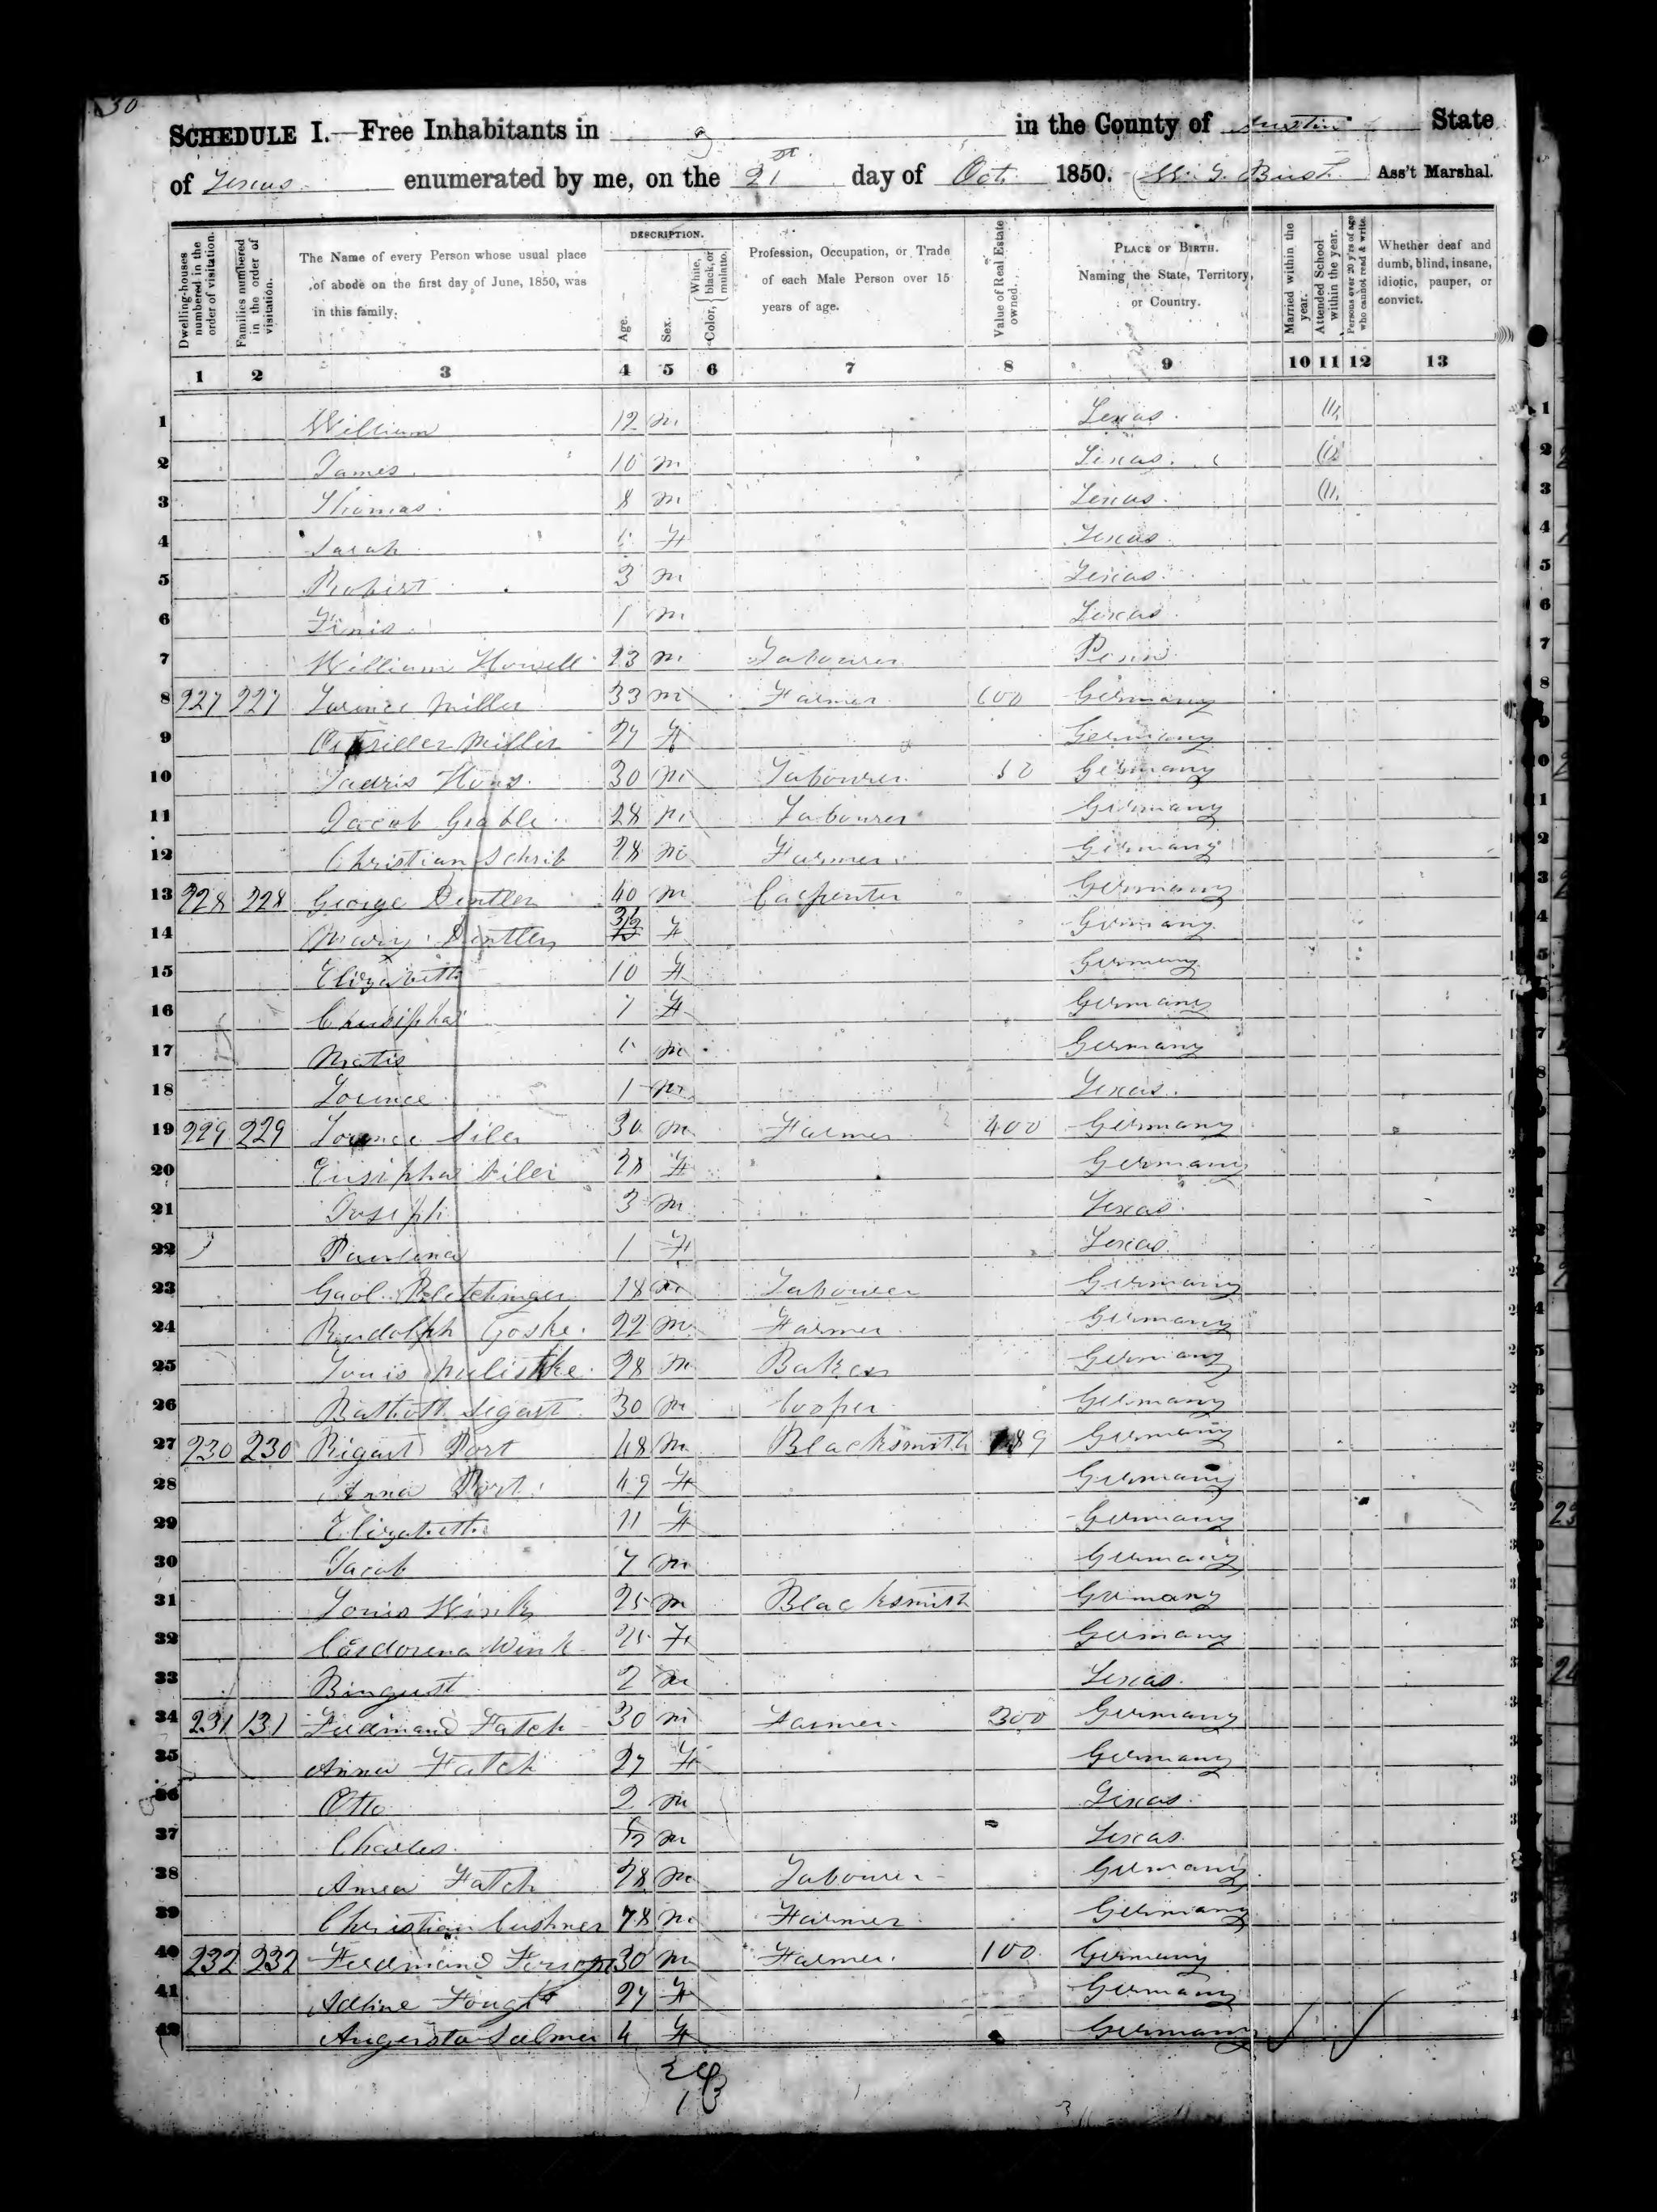 30
SCHEDULE I.—Free Inhabitants in in the County of Austin State
of Texas enumerated by me, on the 21st day of Oct. 1850. Ass't Marshal.
Dwelling-houses numbered in the order of visitation.
Families numbered in the order of visitation.
The Name of every Person whose usual place of abode on the first day of June, 1850, was in this family.
DESCRIPTION.
Age.
Sex.
Color, White, black, or mulatto.
Profession, Occupation, or Trade of each Male Person over 15 years of age.
Value of Real Estate owned.
PLACE OF BIRTH. Naming the State, Territory, or Country.
Married within the year.
Attended School within the year.
Persons over 20 y'rs of age who cannot read & write.
Whether deaf and dumb, blind, insane, idiotic, pauper, or convict.
1 2 3 4 5 6 7 8 9 10 11 12 13
1 William 12 m Texas 1
2 James 10 m Texas 2
3 Thomas 8 m Texas 3
4 Sarah F Texas 4
5 Robert 3 m Texas 5
6 Finis 1 m Texas 6
7 William Howell 23 m Labourer Penn 7
8 227 227 Lorince Miller 33 m Farmer 600 Germany 8
9 Miller 27 F Germany 9
10 30 m Labourer 50 Germany
11 Jacob 28 m Labourer Germany
12 Christian Schrib 28 m Farmer Germany
13 228 228 George Dentler 40 m Carpenter Germany
14 Mary Dentler F Germany
15 Elizabeth 10 F Germany
16 7 F Germany
17 Matis m Germany
18 Lorince 1 m Texas
19 229 229 Lorince Siler 30 m Farmer 400 Germany
20 Siler 28 F Germany
21 Joseph 3 m Texas
22 Paulena 1 F Texas
23 18 m Labourer Germany
24 Rudolph Goske 22 m Farmer Germany
25 Louis 28 m Baker Germany
26 Segart 30 m Cooper Germany
27 230 230 Rigart Port 48 m Blacksmith Germany
28 Anna Port 49 F Germany
29 Elizabeth 11 F Germany
30 Jacob 7 m Germany
31 Louis Wink 25 m Blacksmith Germany
32 Wink 25 F Germany
33 Bingust 2 m Texas
34 231 131 Ferdinand Fatch 30 m Farmer 300 Germany
35 Anna Fatch 27 F Germany
36 Otto 2 m Texas
37 Charles m Texas
38 Fatch 28 m Labourer Germany
39 Christian Cushner 28 m Farmer Germany
40 232 232 Ferdinand 30 m Farmer 100 Germany
41 Adline Fought 27 F Germany
42 Augersta Salmer 4 F Germany